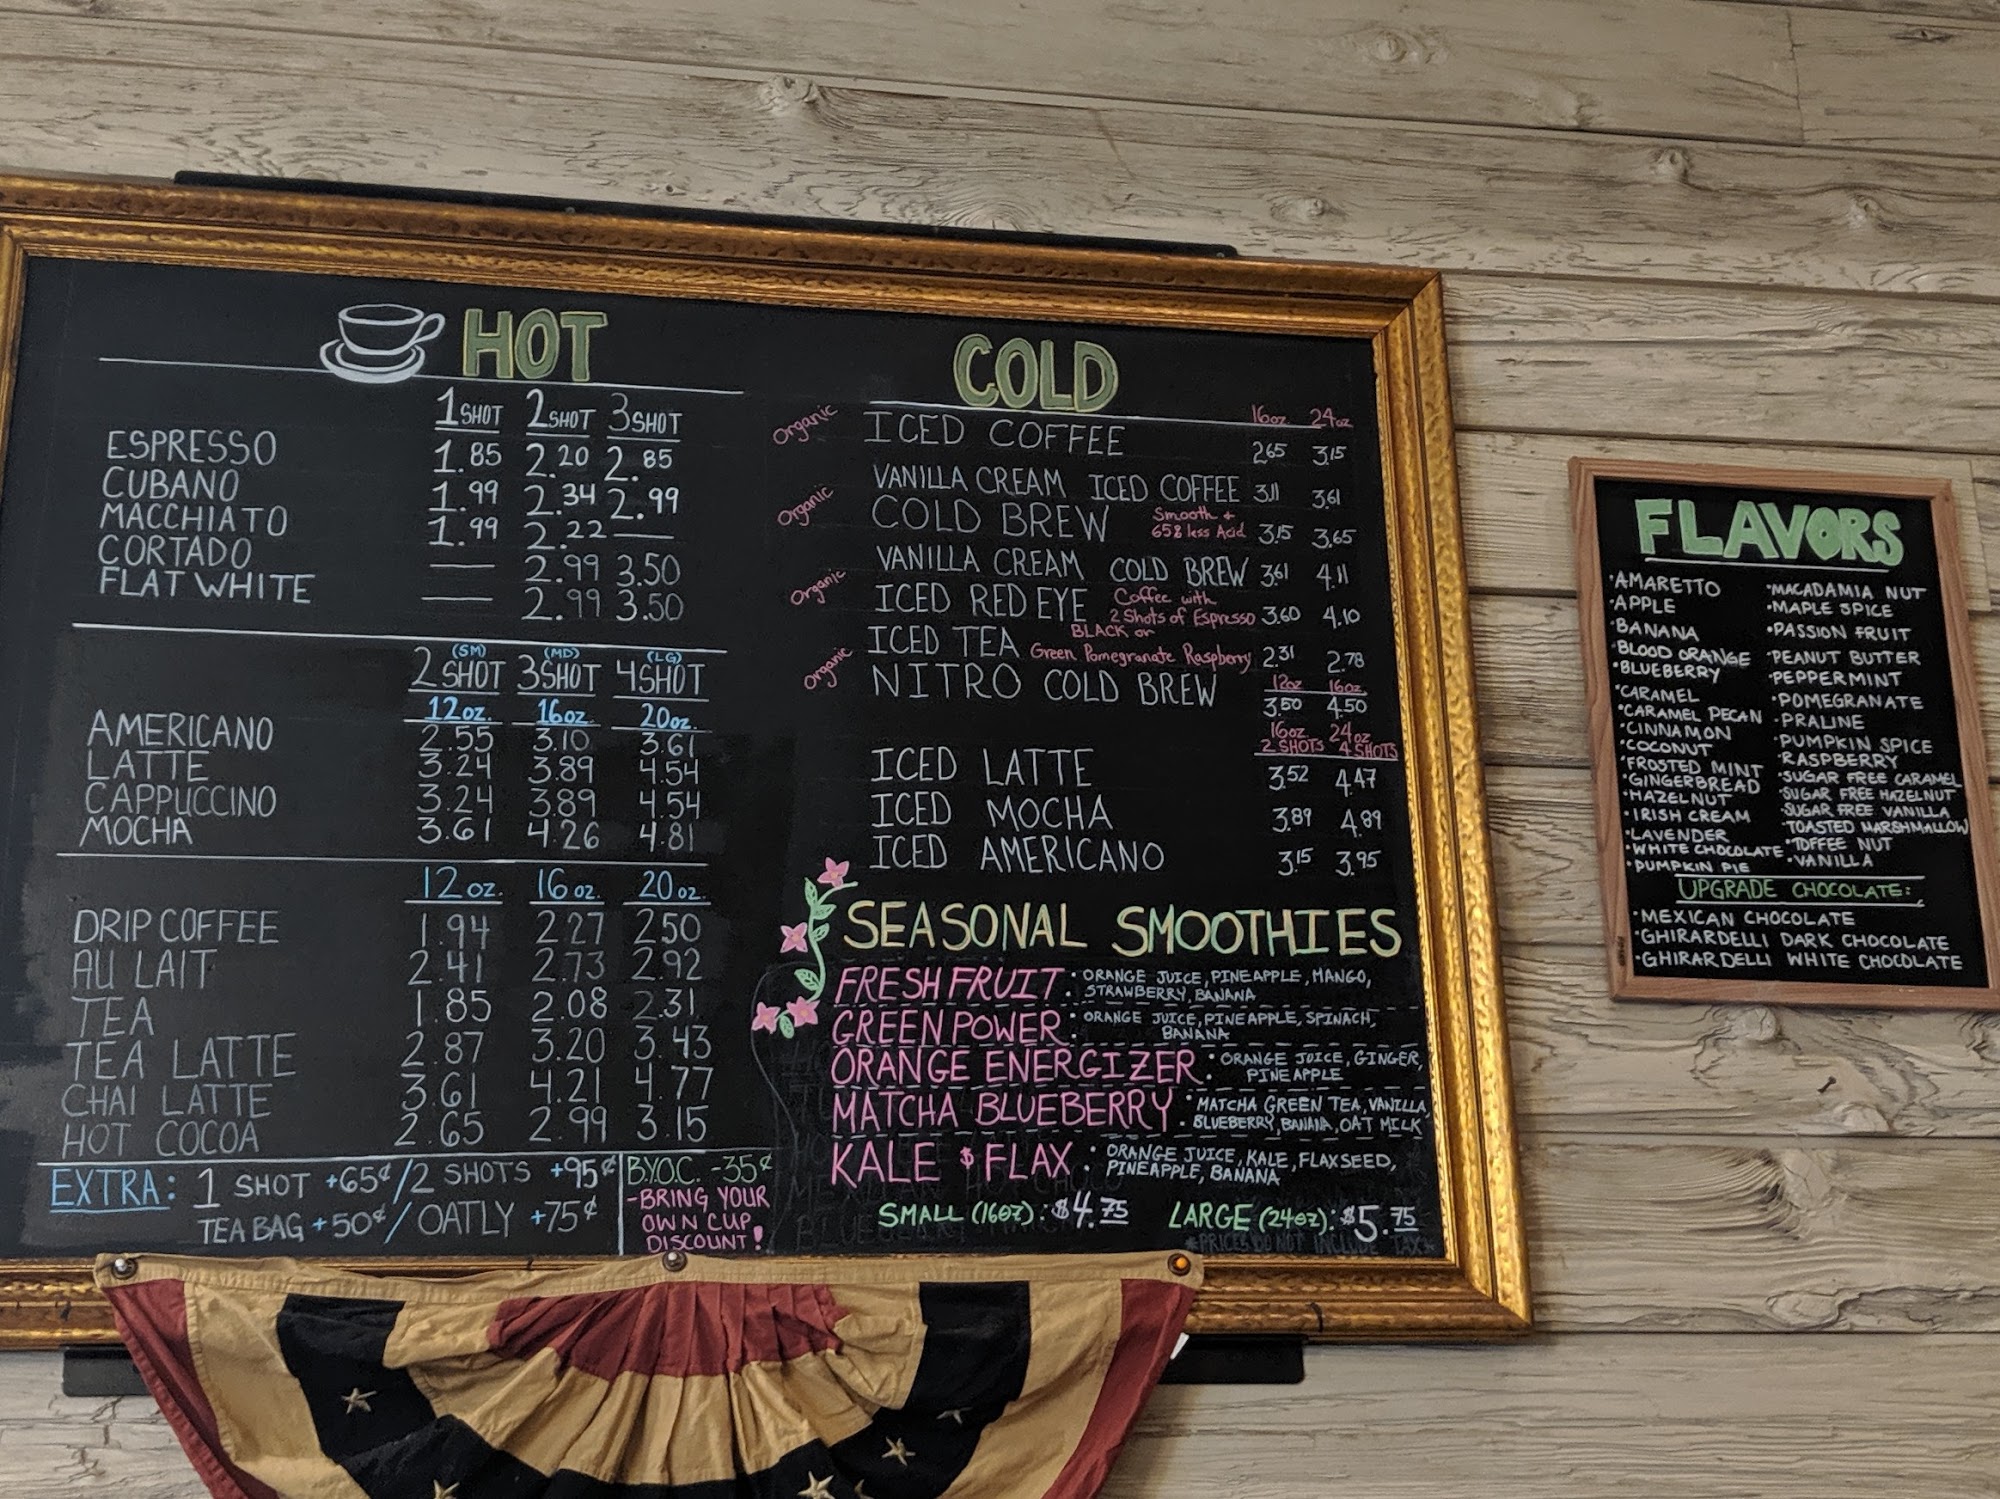 HOT
1 SHOT 2 SHOT 3 SHOT
ESPRESSO 1.85 2.20 2.85
CUBANO 1.99 2.34 2.99
MACCHIATO 1.99 2.22 —
CORTADO — 2.99 3.50
FLAT WHITE — 2.99 3.50
(SM) (MD) (LG)
2 SHOT 3 SHOT 4 SHOT
12 oz. 16 oz 20 oz.
AMERICANO 2.55 3.10 3.61
LATTE 3.24 3.89 4.54
CAPPUCCINO 3.24 3.89 4.54
MOCHA 3.61 4.26 4.81
12 oz. 16 oz. 20 oz.
DRIP COFFEE 1.94 2.27 2.50
AU LAIT 2.41 2.73 2.92
TEA 1.85 2.08 2.31
TEA LATTE 2.87 3.20 3.43
CHAI LATTE 3.61 4.21 4.77
HOT COCOA 2.65 2.99 3.15
EXTRA: 1 SHOT +65¢ / 2 SHOTS +95¢
TEA BAG +50¢ / OATLY +75¢
B.Y.O.C. -35¢
-BRING YOUR
OWN CUP
DISCOUNT!
COLD
16oz. 24oz
Organic ICED COFFEE 2.65 3.15
VANILLA CREAM ICED COFFEE 3.11 3.61
Organic COLD BREW Smooth + 65% less Acid 3.15 3.65
VANILLA CREAM COLD BREW 3.61 4.11
Organic ICED RED EYE Coffee with 2 Shots of Espresso 3.60 4.10
ICED TEA BLACK or Green Pomegranate Raspberry 2.31 2.78
12oz 16oz
Organic NITRO COLD BREW 3.50 4.50
16oz 24oz
2 SHOTS 4 SHOTS
ICED LATTE 3.52 4.47
ICED MOCHA 3.89 4.89
ICED AMERICANO 3.15 3.95
SEASONAL SMOOTHIES
FRESH FRUIT: ORANGE JUICE, PINEAPPLE, MANGO,
STRAWBERRY, BANANA
GREEN POWER: ORANGE JUICE, PINEAPPLE, SPINACH,
BANANA
ORANGE ENERGIZER: ORANGE JUICE, GINGER,
PINEAPPLE
MATCHA BLUEBERRY: MATCHA GREEN TEA, VANILLA,
BLUEBERRY, BANANA, OAT MILK
KALE $ FLAX: ORANGE JUICE, KALE, FLAXSEED,
PINEAPPLE, BANANA
SMALL (16oz): $4.75 LARGE (24oz): $5.75
*PRICES DO NOT INCLUDE TAX*
FLAVORS
•AMARETTO
•APPLE
•BANANA
•BLOOD ORANGE
•BLUEBERRY
•CARAMEL
•CARAMEL PECAN
•CINNAMON
•COCONUT
•FROSTED MINT
•GINGERBREAD
•HAZELNUT
•IRISH CREAM
•LAVENDER
•WHITE CHOCOLATE
•PUMPKIN PIE
•MACADAMIA NUT
•MAPLE SPICE
•PASSION FRUIT
•PEANUT BUTTER
•PEPPERMINT
•POMEGRANATE
•PRALINE
•PUMPKIN SPICE
•RASPBERRY
•SUGAR FREE CARAMEL
•SUGAR FREE HAZELNUT
•SUGAR FREE VANILLA
•TOASTED MARSHMALLOW
•TOFFEE NUT
•VANILLA
UPGRADE CHOCOLATE:
•MEXICAN CHOCOLATE
•GHIRARDELLI DARK CHOCOLATE
•GHIRARDELLI WHITE CHOCOLATE